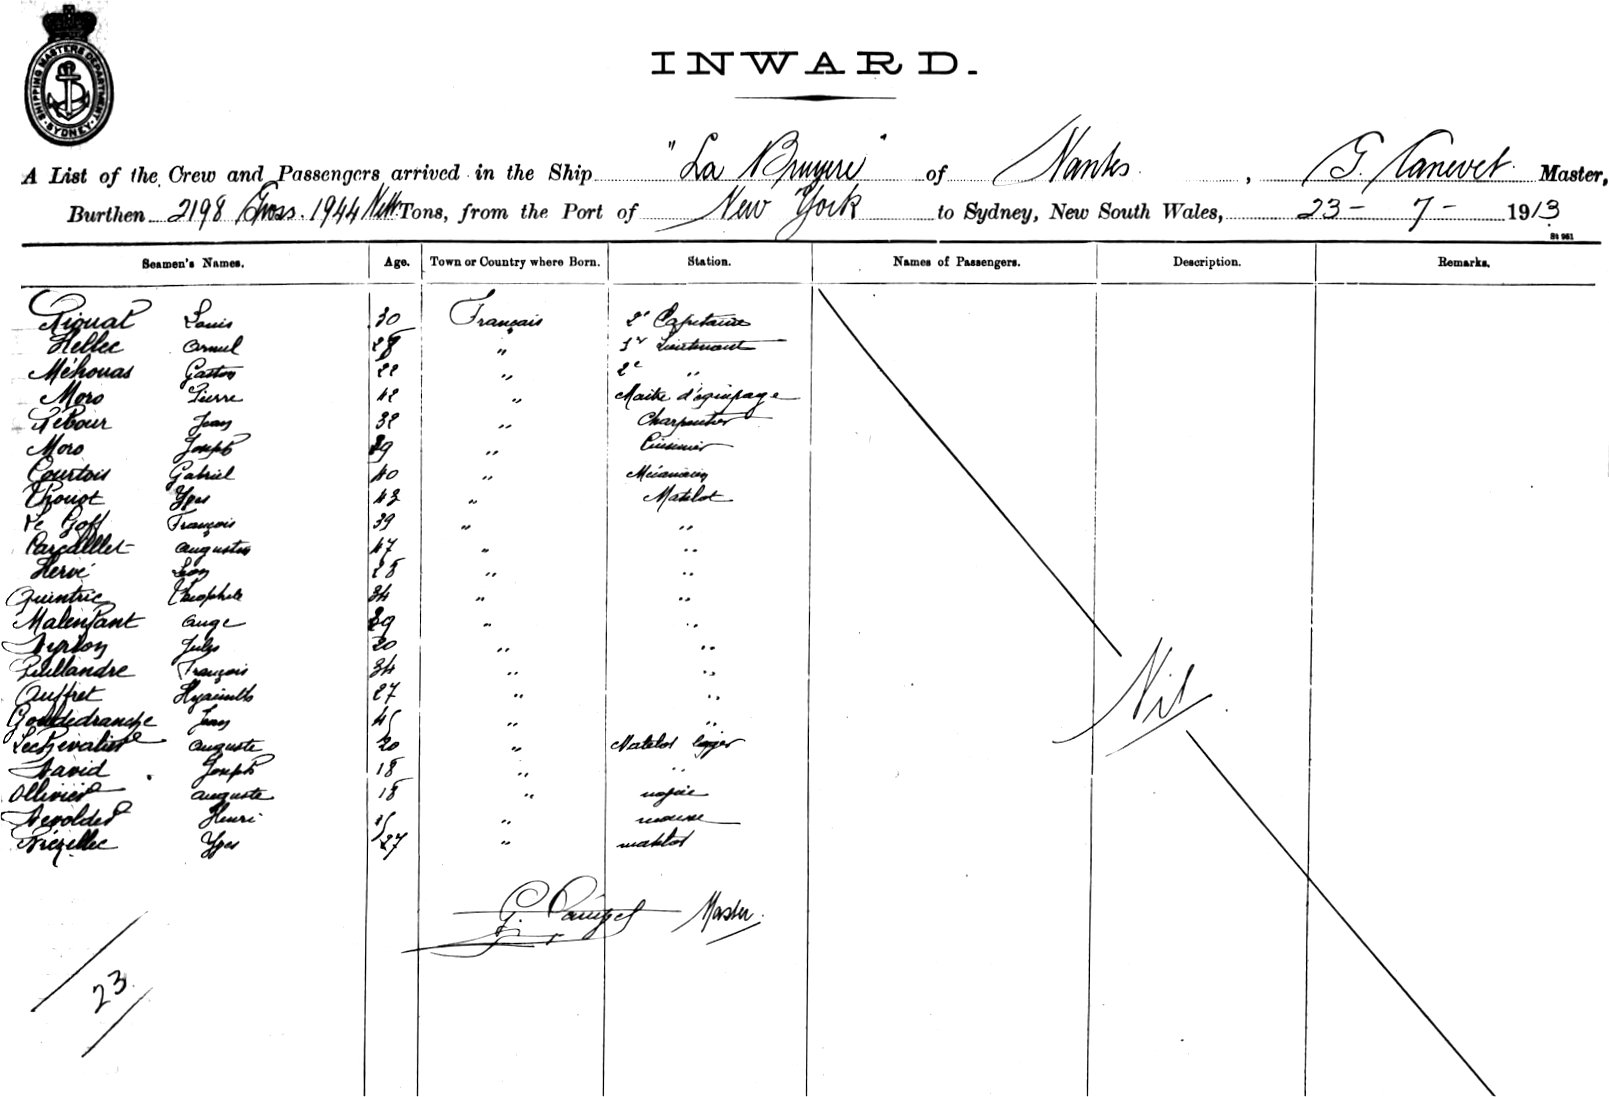 SHIPPING MASTERS DEPARTMENT SYDNEY
INWARD.
A List of the Crew and Passengers arrived in the Ship "La Bruyere" of Nantes, G. Canevet Master,
Burthen 2198 Gross. 1944 Nett Tons, from the Port of New York to Sydney, New South Wales, 23 - 7 - 1913
St 961
Seamen's Names. Age. Town or Country where Born. Station. Names of Passengers. Description. Remarks.
Riouat Louis 30 Français 2e Capitaine
Hellec Armel 28 " 1er Lieutenant
Méhouas Gaston 22 " 2e "
Moro Pierre 42 " Maitre d'équipage
Rebour Jean 32 " Charpentier
Moro Joseph 39 " Cuisinier
Courtois Gabriel 40 " Mécanicien
Prouot Yves 43 " Matelot
Le Goff François 39 " "
Augustin 47 " "
Hervé Léon 28 " "
Quintric Théophile 34 " "
Malenfant Ange 29 " "
Jules 20 " "
Guillandre François 34 " "
Auffret Hyacinthe 27 " "
Goudedranche Jean 45 " "
Lechevalier Auguste 20 " Matelot léger
David Joseph 18 " "
Ollivier Auguste 18 " novice
Devolder Henri 15 " mousse
Yves 27 " matelot
Nil
G. Canevet Master.
23